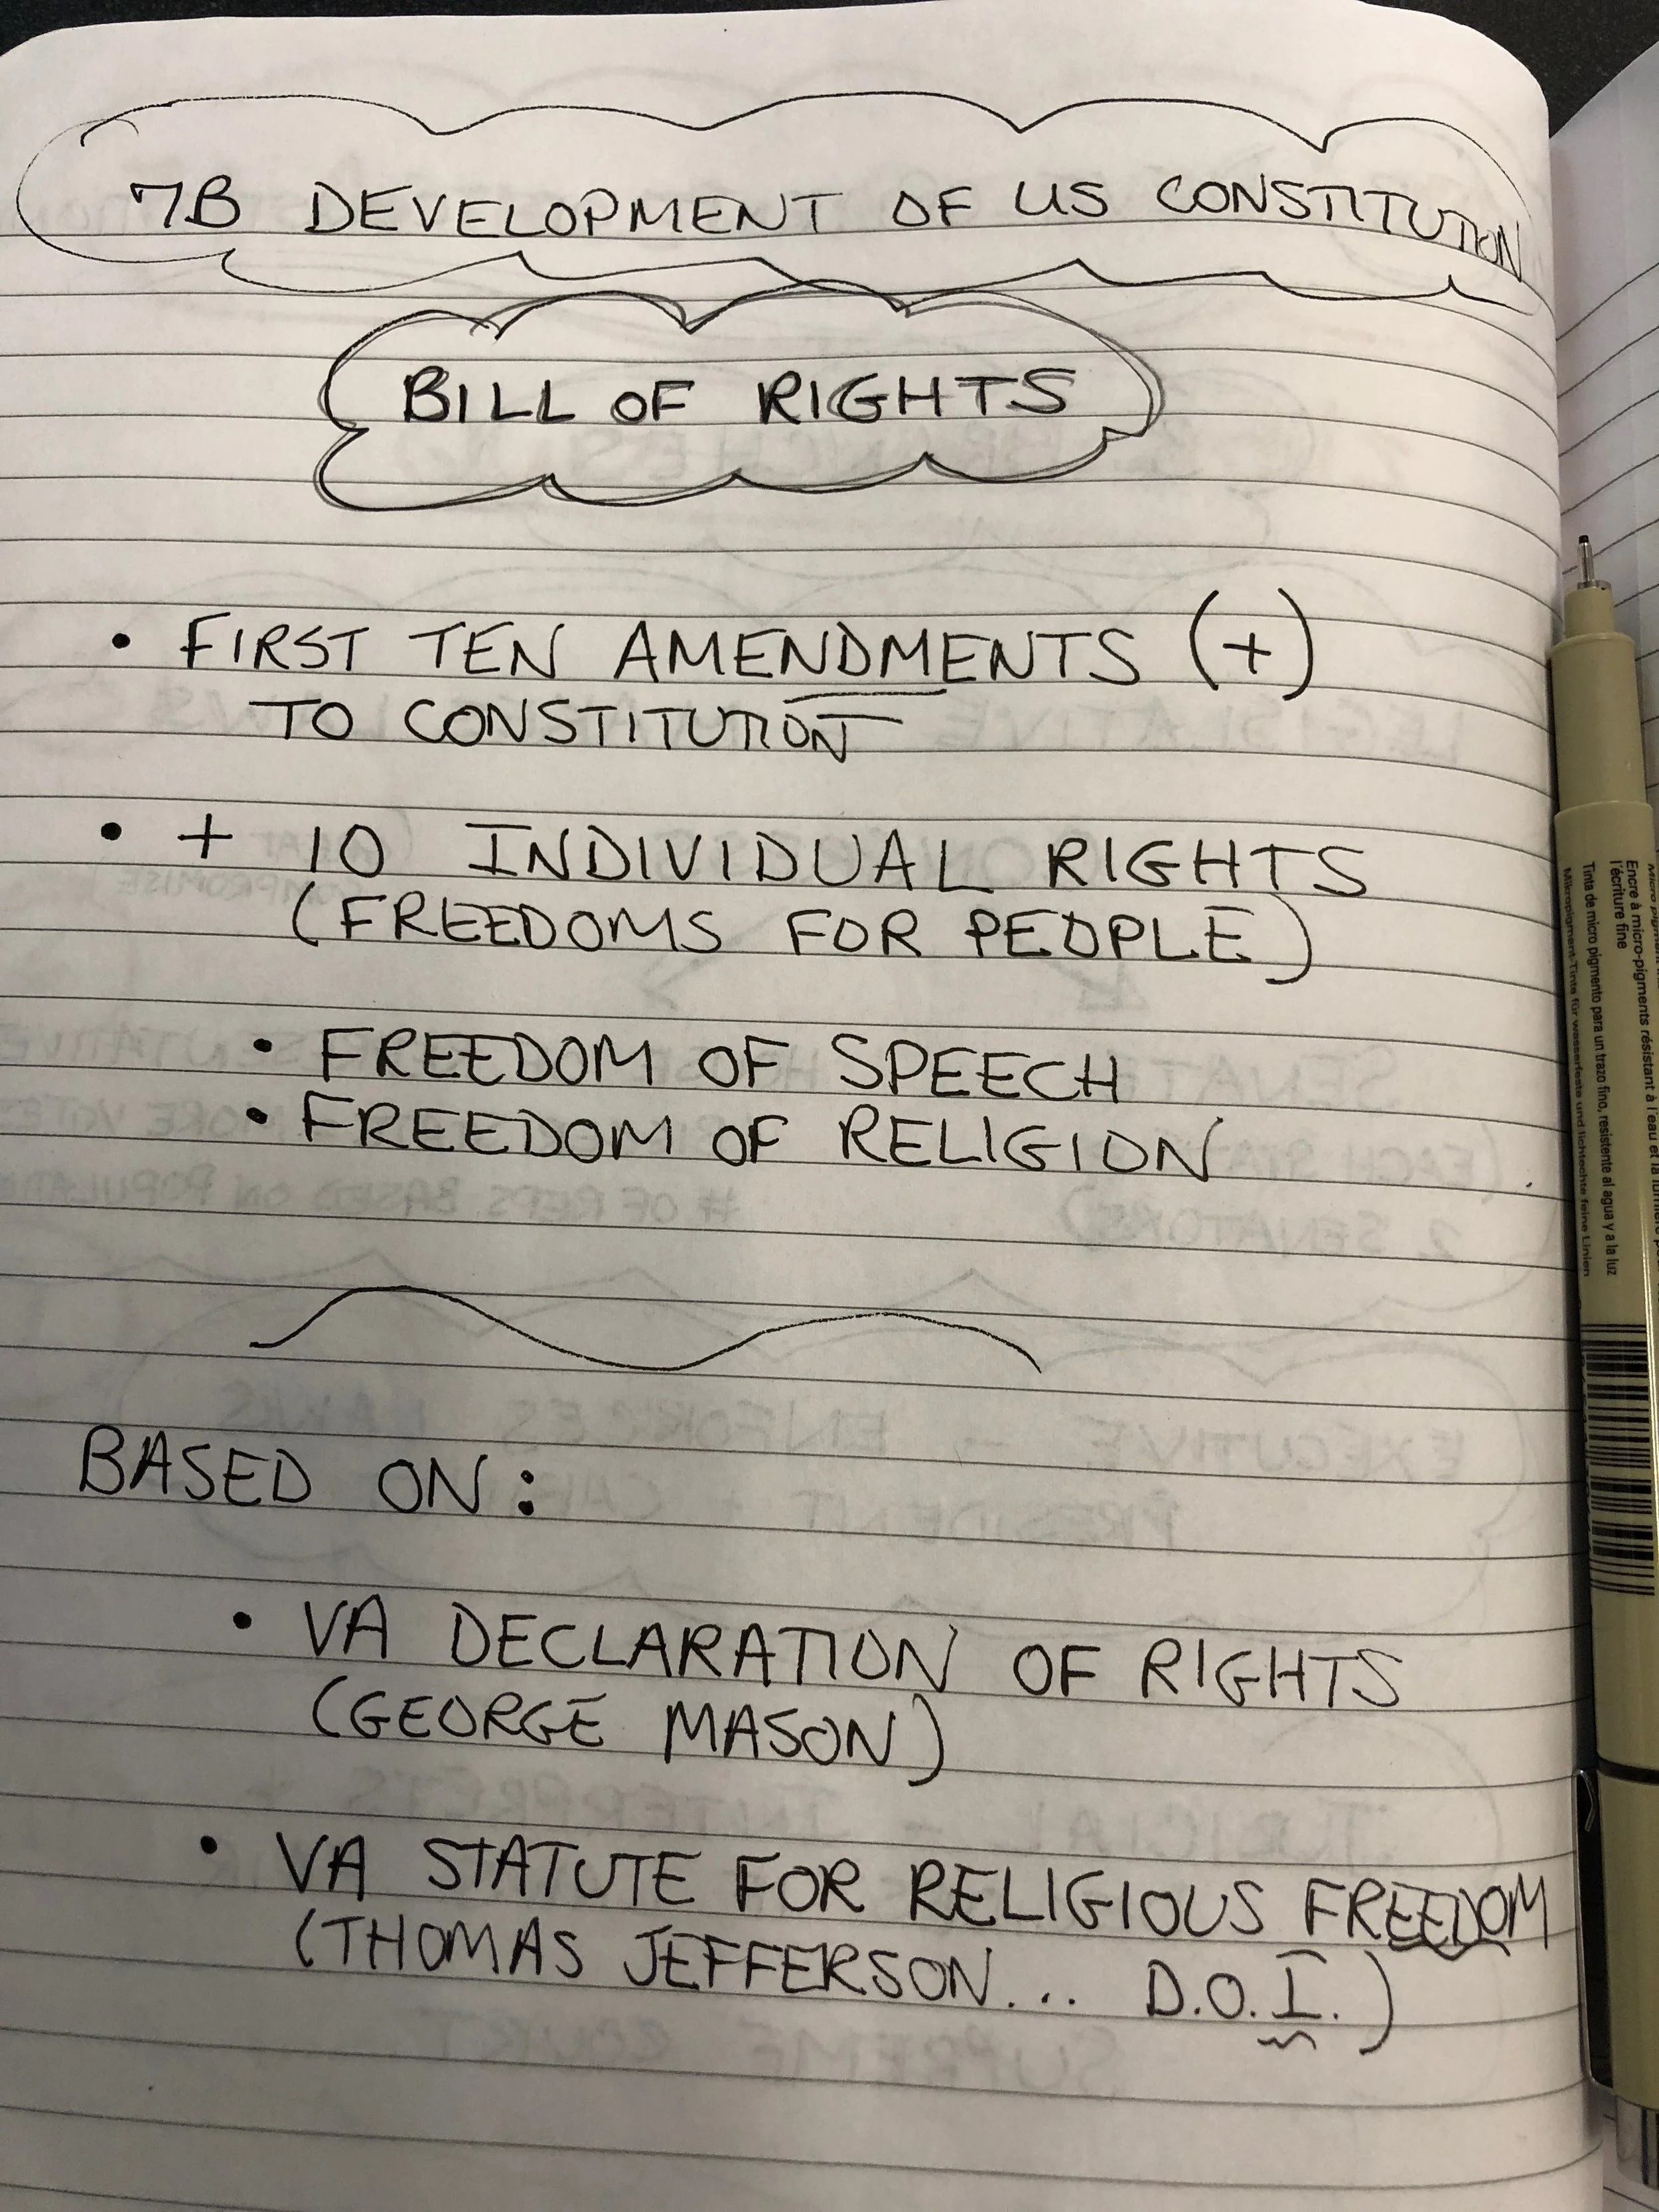 7B DEVELOPMENT OF US CONSTITUTION
BILL OF RIGHTS
• FIRST TEN AMENDMENTS (+)
TO CONSTITUTION
• + 10 INDIVIDUAL RIGHTS
(FREEDOMS FOR PEOPLE)
• FREEDOM OF SPEECH
• FREEDOM OF RELIGION
BASED ON:
• VA DECLARATION OF RIGHTS
(GEORGE MASON)
• VA STATUTE FOR RELIGIOUS FREEDOM
(THOMAS JEFFERSON... D.O.I.)
Encre à micro-pigments résistant à l'eau et la
l'écriture fine
Tinta de micro pigmento para un trazo fino, resistente al agua y a la luz
Mikropigment-Tinte für wasserfeste und lichtechte feine Linien